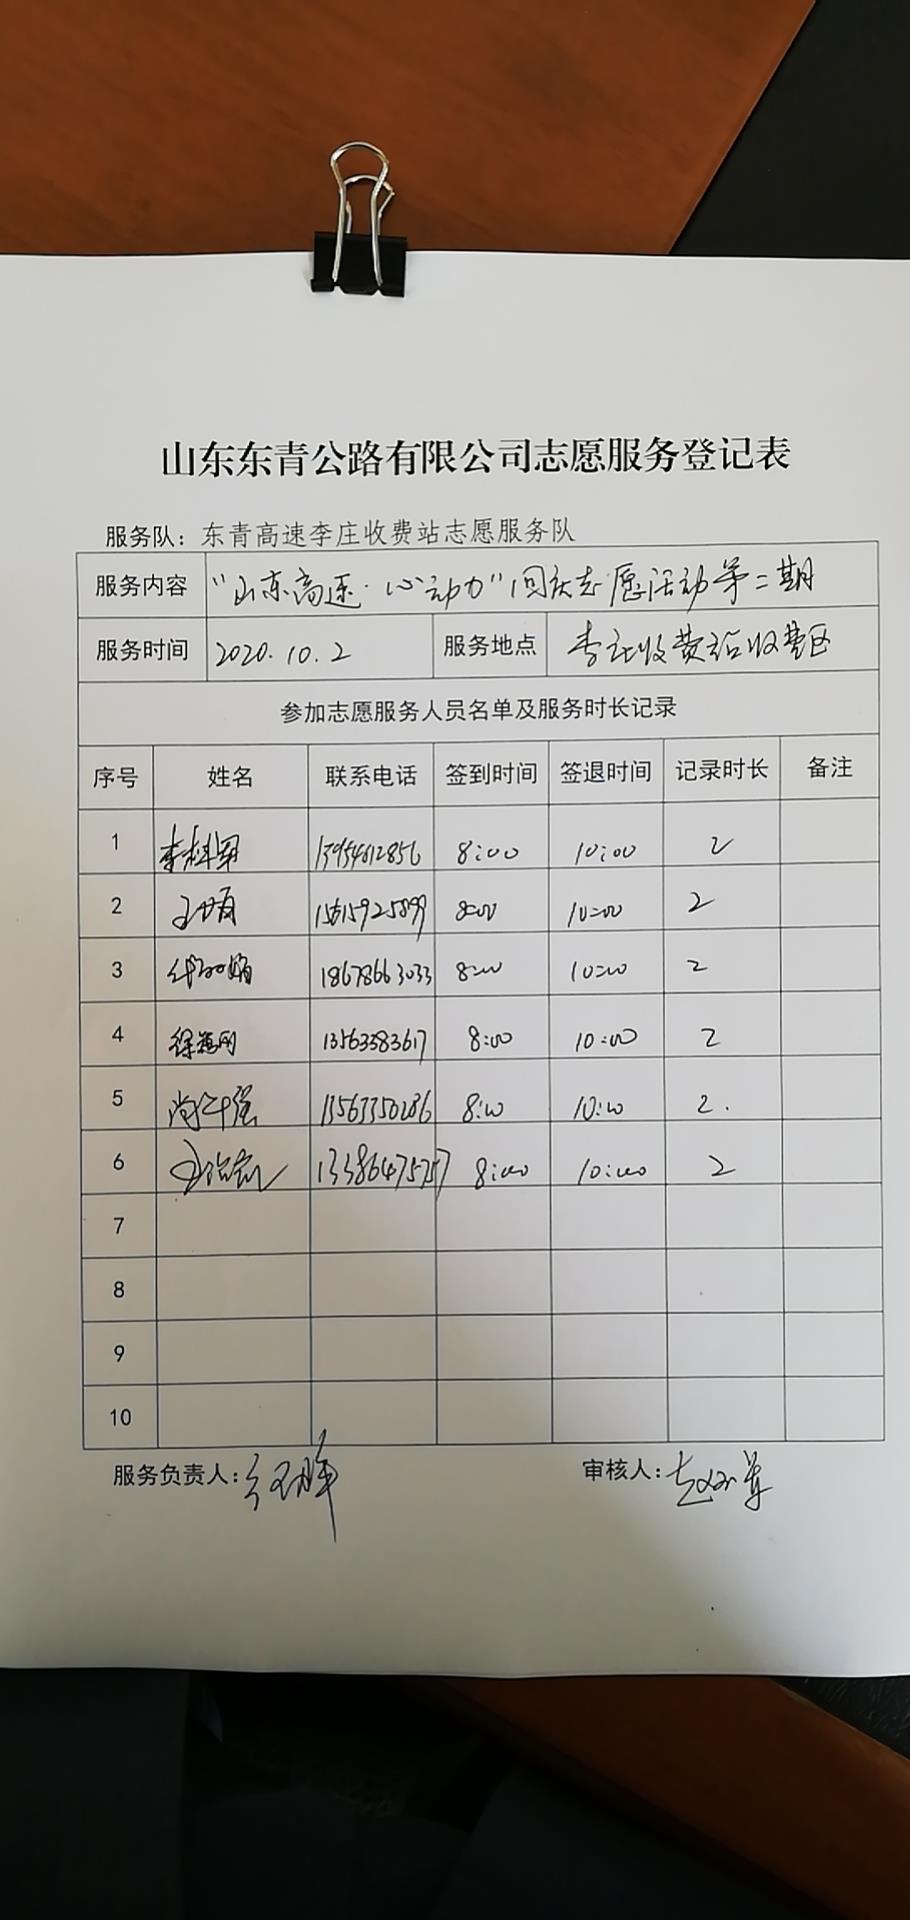 山东东青公路有限公司志愿服务登记表
服务队：东青高速李庄收费站志愿服务队
服务内容 “山东高速·心动力”国庆志愿活动第二期
服务时间 2020.10.2 服务地点 李庄收费站收费区
参加志愿服务人员名单及服务时长记录
序号 姓名 联系电话 签到时间 签退时间 记录时长 备注
1 8:00 10:00 2
2 15615925899 8:00 10:00 2
3 18678663033 8:00 10:00 2
4 13563383617 8:00 10:00 2
5 13563350286 8:00 10:00 2.
6 13386475757 8:00 10:00 2
7
8
9
10
服务负责人： 审核人：